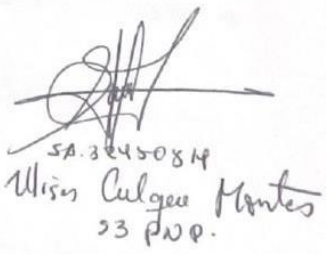 SA. 32450814
Ulises Culqui Montes
S3 PNP.